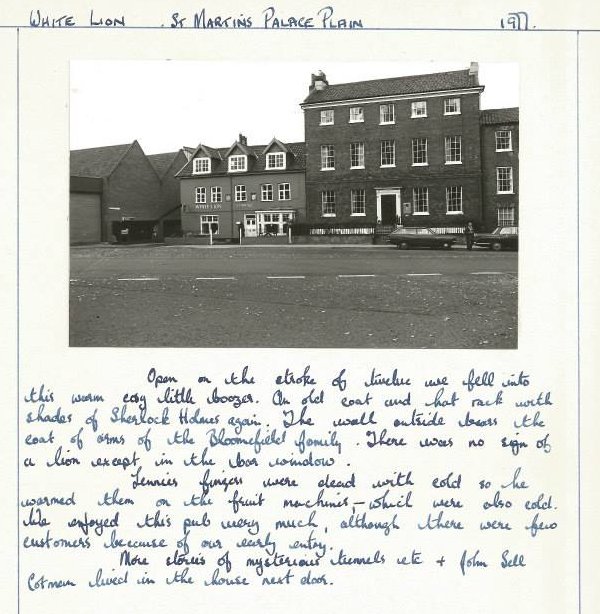 WHITE LION . ST MARTINS PALACE PLAIN 1977.
WHITE LION
Open on the stroke of twelve we fell into
this warm cosy little boozer. An old coat and hat rack with
shades of Sherlock Holmes again. The wall outside bears the
coat of arms of the Bloomefield family. There was no sign of
a lion except in the bar window.
Lennies fingers were dead with cold so he
warmed them on the fruit machines, – which were also cold.
We enjoyed this pub very much, although there were few
customers because of our early entry.
More stories of mysterious tunnels etc + John Sell
Cotman lived in the house next door.